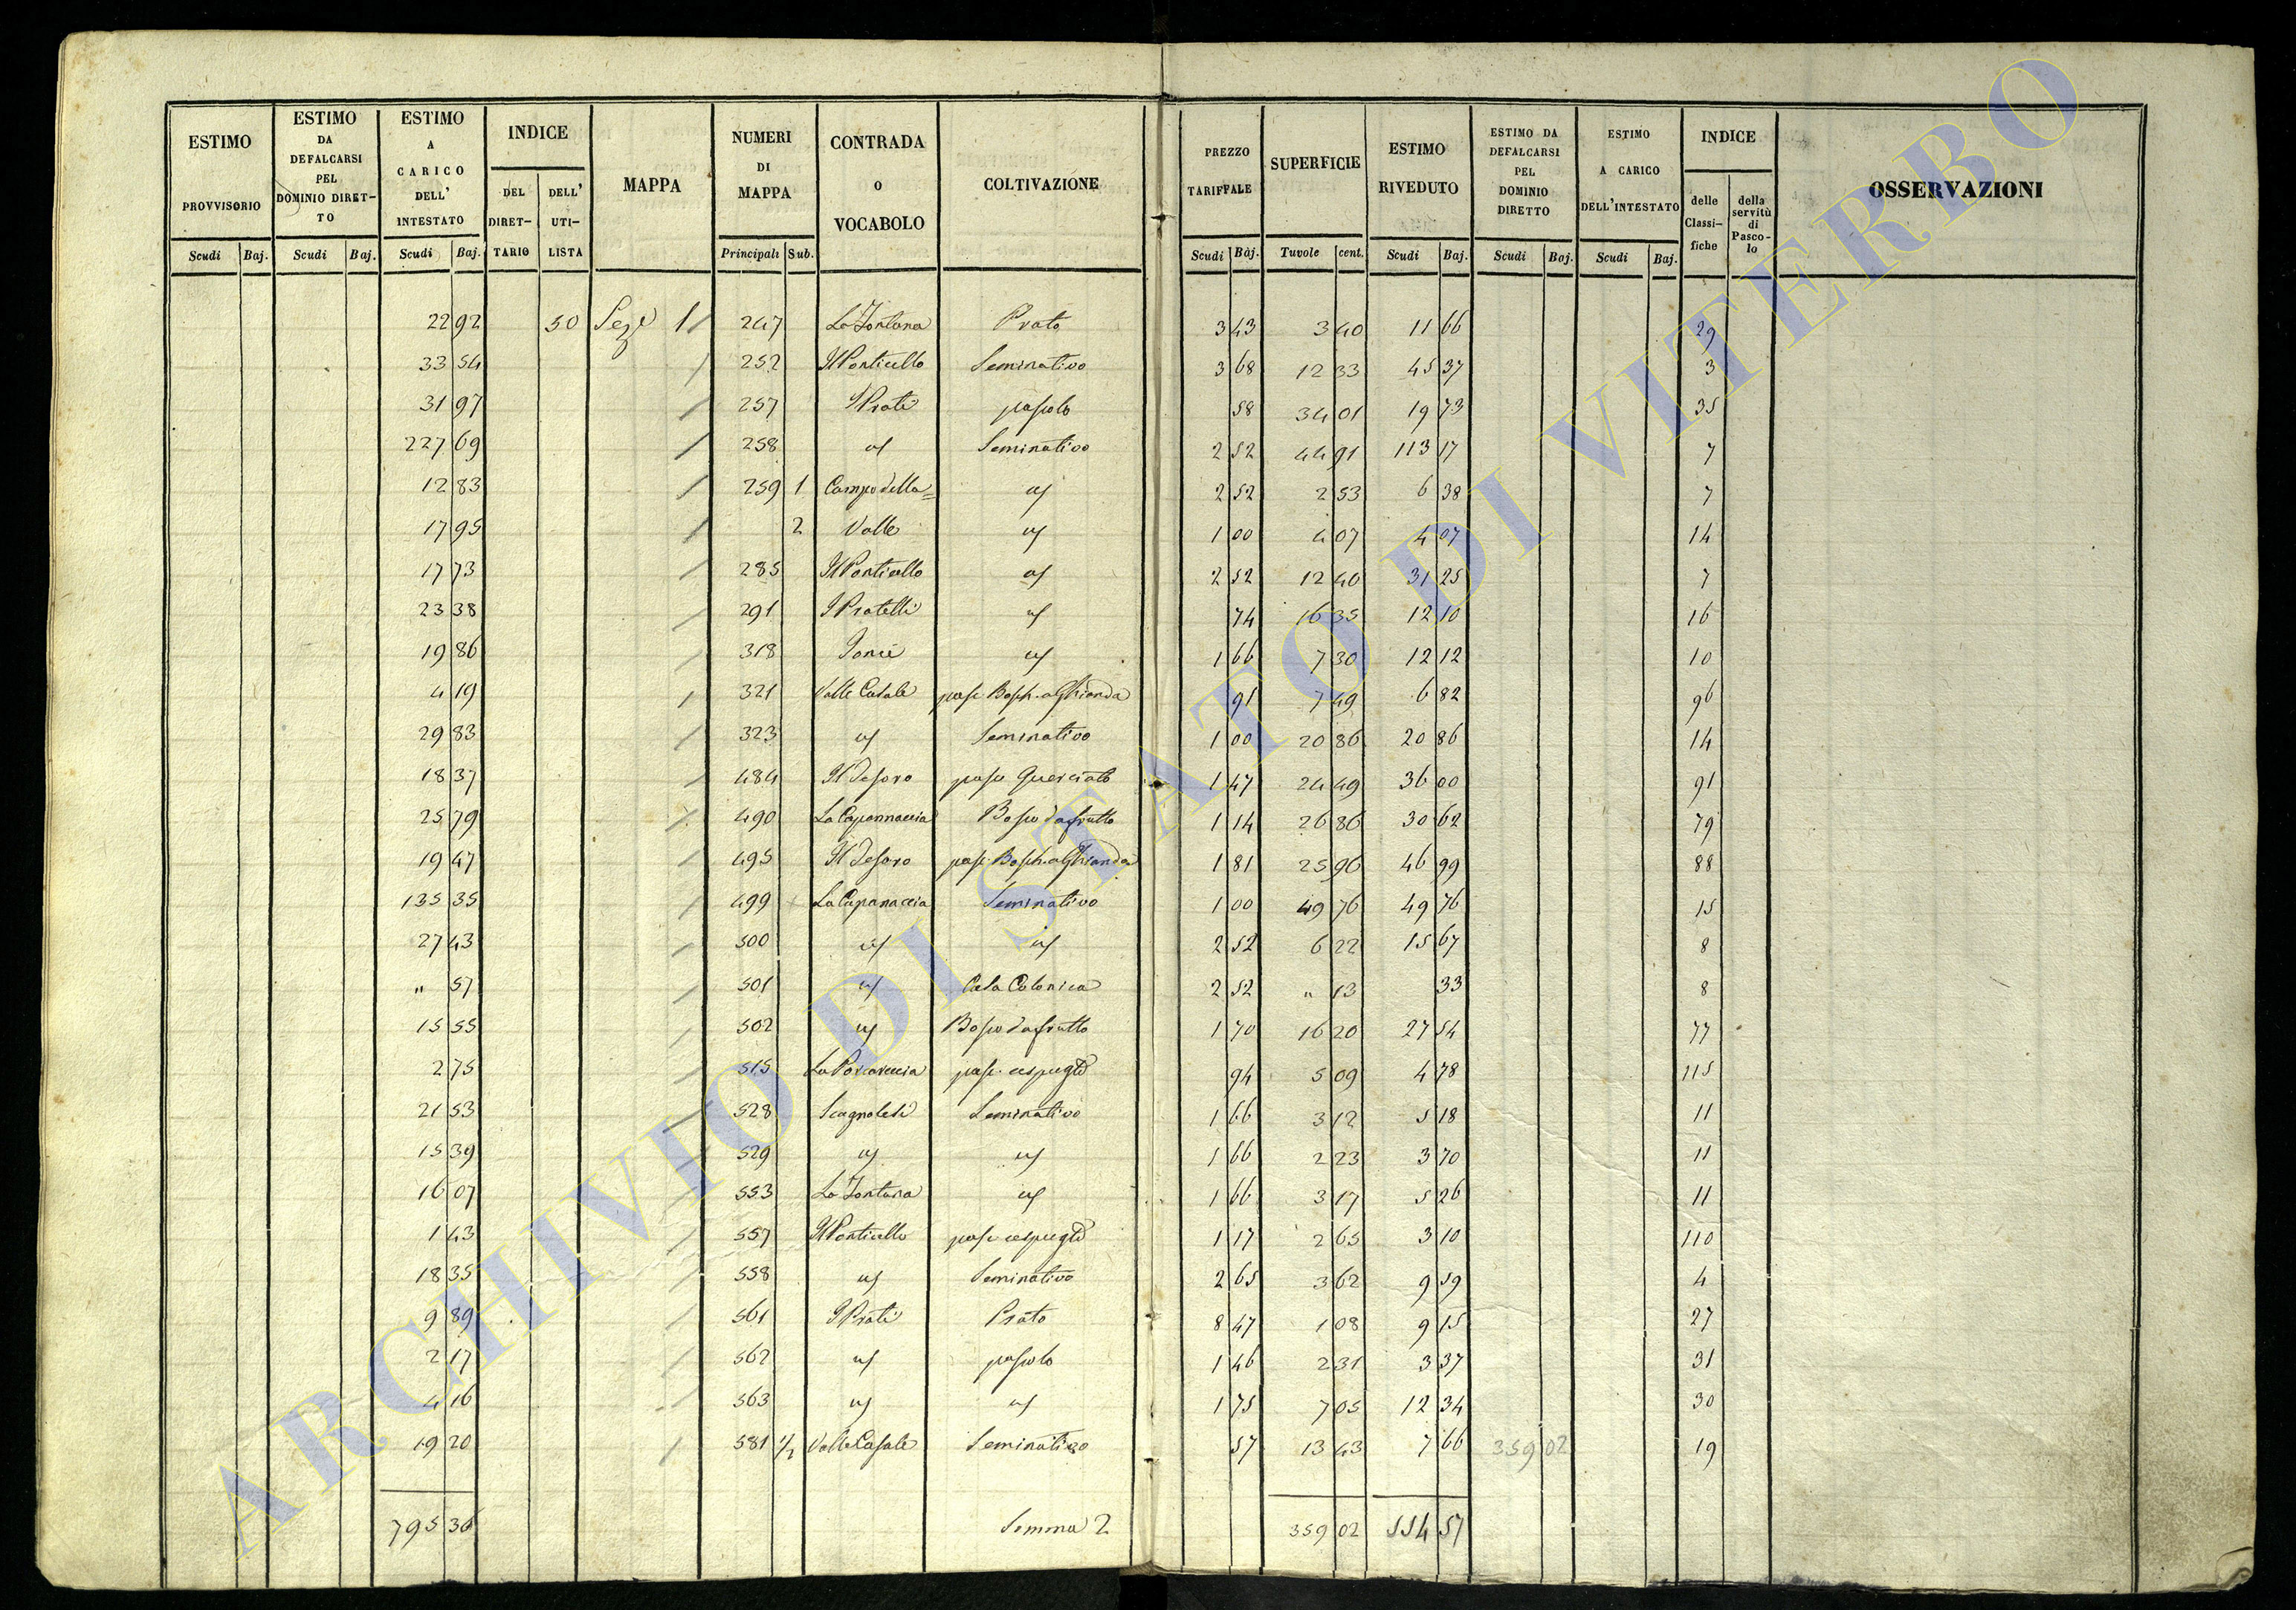 ESTIMO PROVVISORIO Scudi Baj.
ESTIMO DA DEFALCARSI PEL DOMINIO DIRETTO Scudi Baj.
ESTIMO A CARICO DELL' INTESTATO Scudi Baj.
INDICE DEL DIRETTARIO DELL' UTILISTA
MAPPA
NUMERI DI MAPPA Principali Sub.
CONTRADA O VOCABOLO
COLTIVAZIONE
PREZZO TARIFFALE Scudi Baj.
SUPERFICIE Tavole cent.
ESTIMO RIVEDUTO Scudi Baj.
ESTIMO DA DEFALCARSI PEL DOMINIO DIRETTO Scudi Baj.
ESTIMO A CARICO DELL'INTESTATO Scudi Baj.
INDICE delle Classifiche della servitù di Pascolo
OSSERVAZIONI
22 92 50 Seze 1 247 La Fontana Prato 3 43 3 40 11 66 29
33 54 252 Il Ponticello Seminativo 3 68 12 33 45 37 3
31 97 257 I Prati pascolo 58 34 01 19 73 35
227 69 258 us Seminativo 2 52 44 91 113 17 7
12 83 259 1 Campo della= us 2 52 2 53 6 38 7
17 95 2 Valle us 1 00 4 07 4 07 14
17 73 285 Il Ponticello us 2 52 12 40 31 25 7
23 38 291 I Pratelli us 74 16 35 12 10 16
19 86 318 us 1 66 7 30 12 12 10
4 19 321 Valle Casale pasc. Bosch. a Ghianda 91 7 49 6 82 96
29 83 323 us Seminativo 1 00 20 86 20 86 14
18 37 484 Il Tesoro pasc Querciato 1 47 24 49 36 00 91
25 79 490 La Capannaccia Bosco da frutto 1 14 26 86 30 62 79
19 47 495 Il Tesoro pasc. Bosch. a Ghianda 1 81 25 96 46 99 88
135 35 499 La Capanaccia Seminativo 1 00 49 76 49 76 15
27 43 500 us us 2 52 6 22 15 67 8
" 57 501 us Casa Colonica 2 52 " 13 33 8
15 55 502 us Bosco da frutto 1 70 16 20 27 54 77
2 75 515 La Porcareccia pasc. cespugto 94 5 09 4 78 115
21 53 528 Scagnolesi Seminativo 1 66 3 12 5 18 11
15 39 529 us us 1 66 2 23 3 70 11
16 07 553 La Fontana us 1 66 3 17 5 26 11
1 43 557 Il Ponticello pasc cespugto 1 17 2 65 3 10 110
18 35 558 us Seminativo 2 65 3 62 9 59 4
9 89 561 I Prati Prato 8 47 1 08 9 15 27
2 17 562 us pascolo 1 46 2 31 3 37 31
4 16 563 us us 1 75 7 05 12 34 30
19 20 581 1/2 Valle Casale Seminativo 57 13 43 7 66 359 02 19
795 36 Somma 2 359 02 554 57
ARCHIVIO DI STATO DI VITERBO